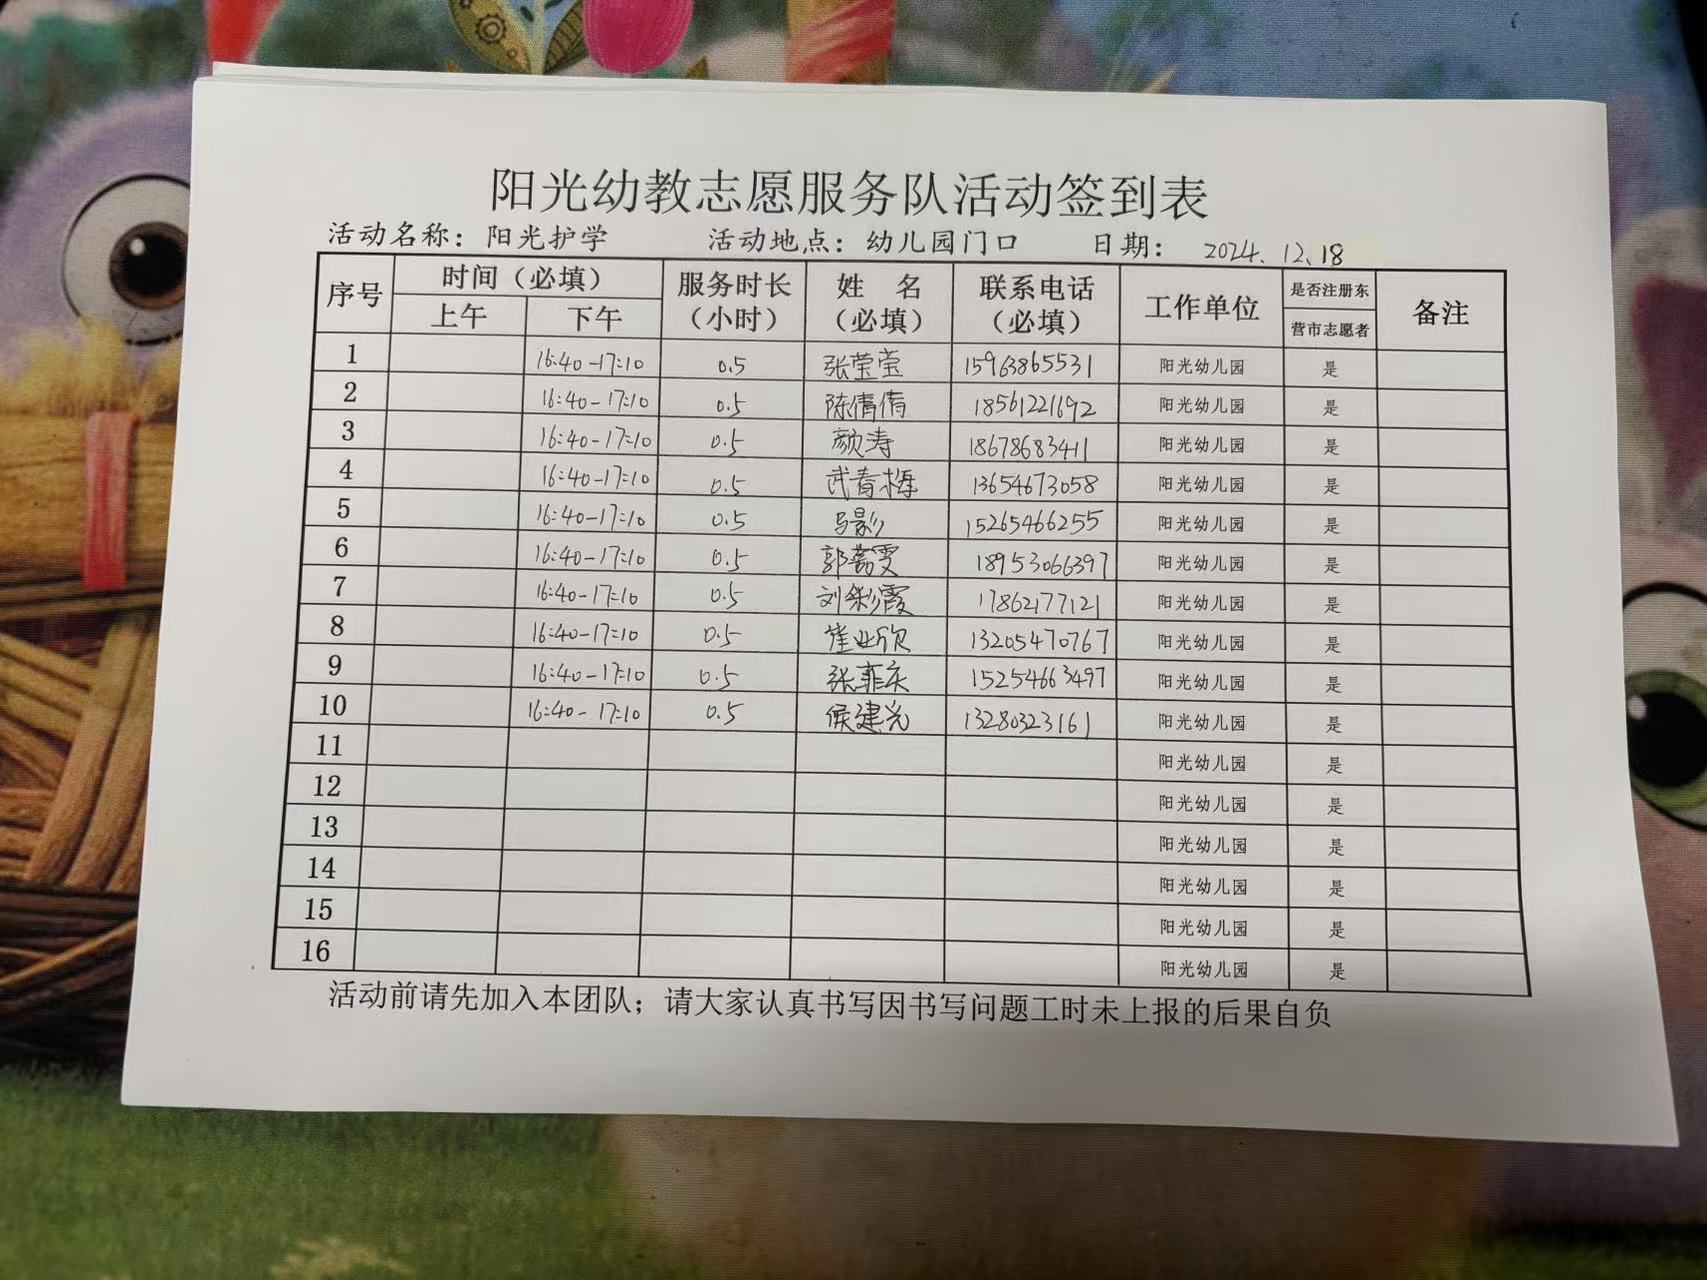 阳光幼教志愿服务队活动签到表
活动名称：阳光护学 活动地点：幼儿园门口 日期：2024.12.18
序号 时间（必填） 服务时长（小时） 姓 名（必填） 联系电话（必填） 工作单位 是否注册东营市志愿者 备注
上午 下午
1 16:40-17:10 0.5 张莹莹 15963865531 阳光幼儿园 是
2 16:40-17:10 0.5 陈倩倩 18561221692 阳光幼儿园 是
3 16:40-17:10 0.5 颜涛 18678683411 阳光幼儿园 是
4 16:40-17:10 0.5 武春梅 13654673058 阳光幼儿园 是
5 16:40-17:10 0.5 马影 15265466255 阳光幼儿园 是
6 16:40-17:10 0.5 郭嘉雯 18953066397 阳光幼儿园 是
7 16:40-17:10 0.5 刘彩霞 17862177121 阳光幼儿园 是
8 16:40-17:10 0.5 崔业欣 13205470767 阳光幼儿园 是
9 16:40-17:10 0.5 张菲 15254663497 阳光幼儿园 是
10 16:40-17:10 0.5 侯建光 13280323161 阳光幼儿园 是
11 阳光幼儿园 是
12 阳光幼儿园 是
13 阳光幼儿园 是
14 阳光幼儿园 是
15 阳光幼儿园 是
16 阳光幼儿园 是
活动前请先加入本团队；请大家认真书写因书写问题工时未上报的后果自负